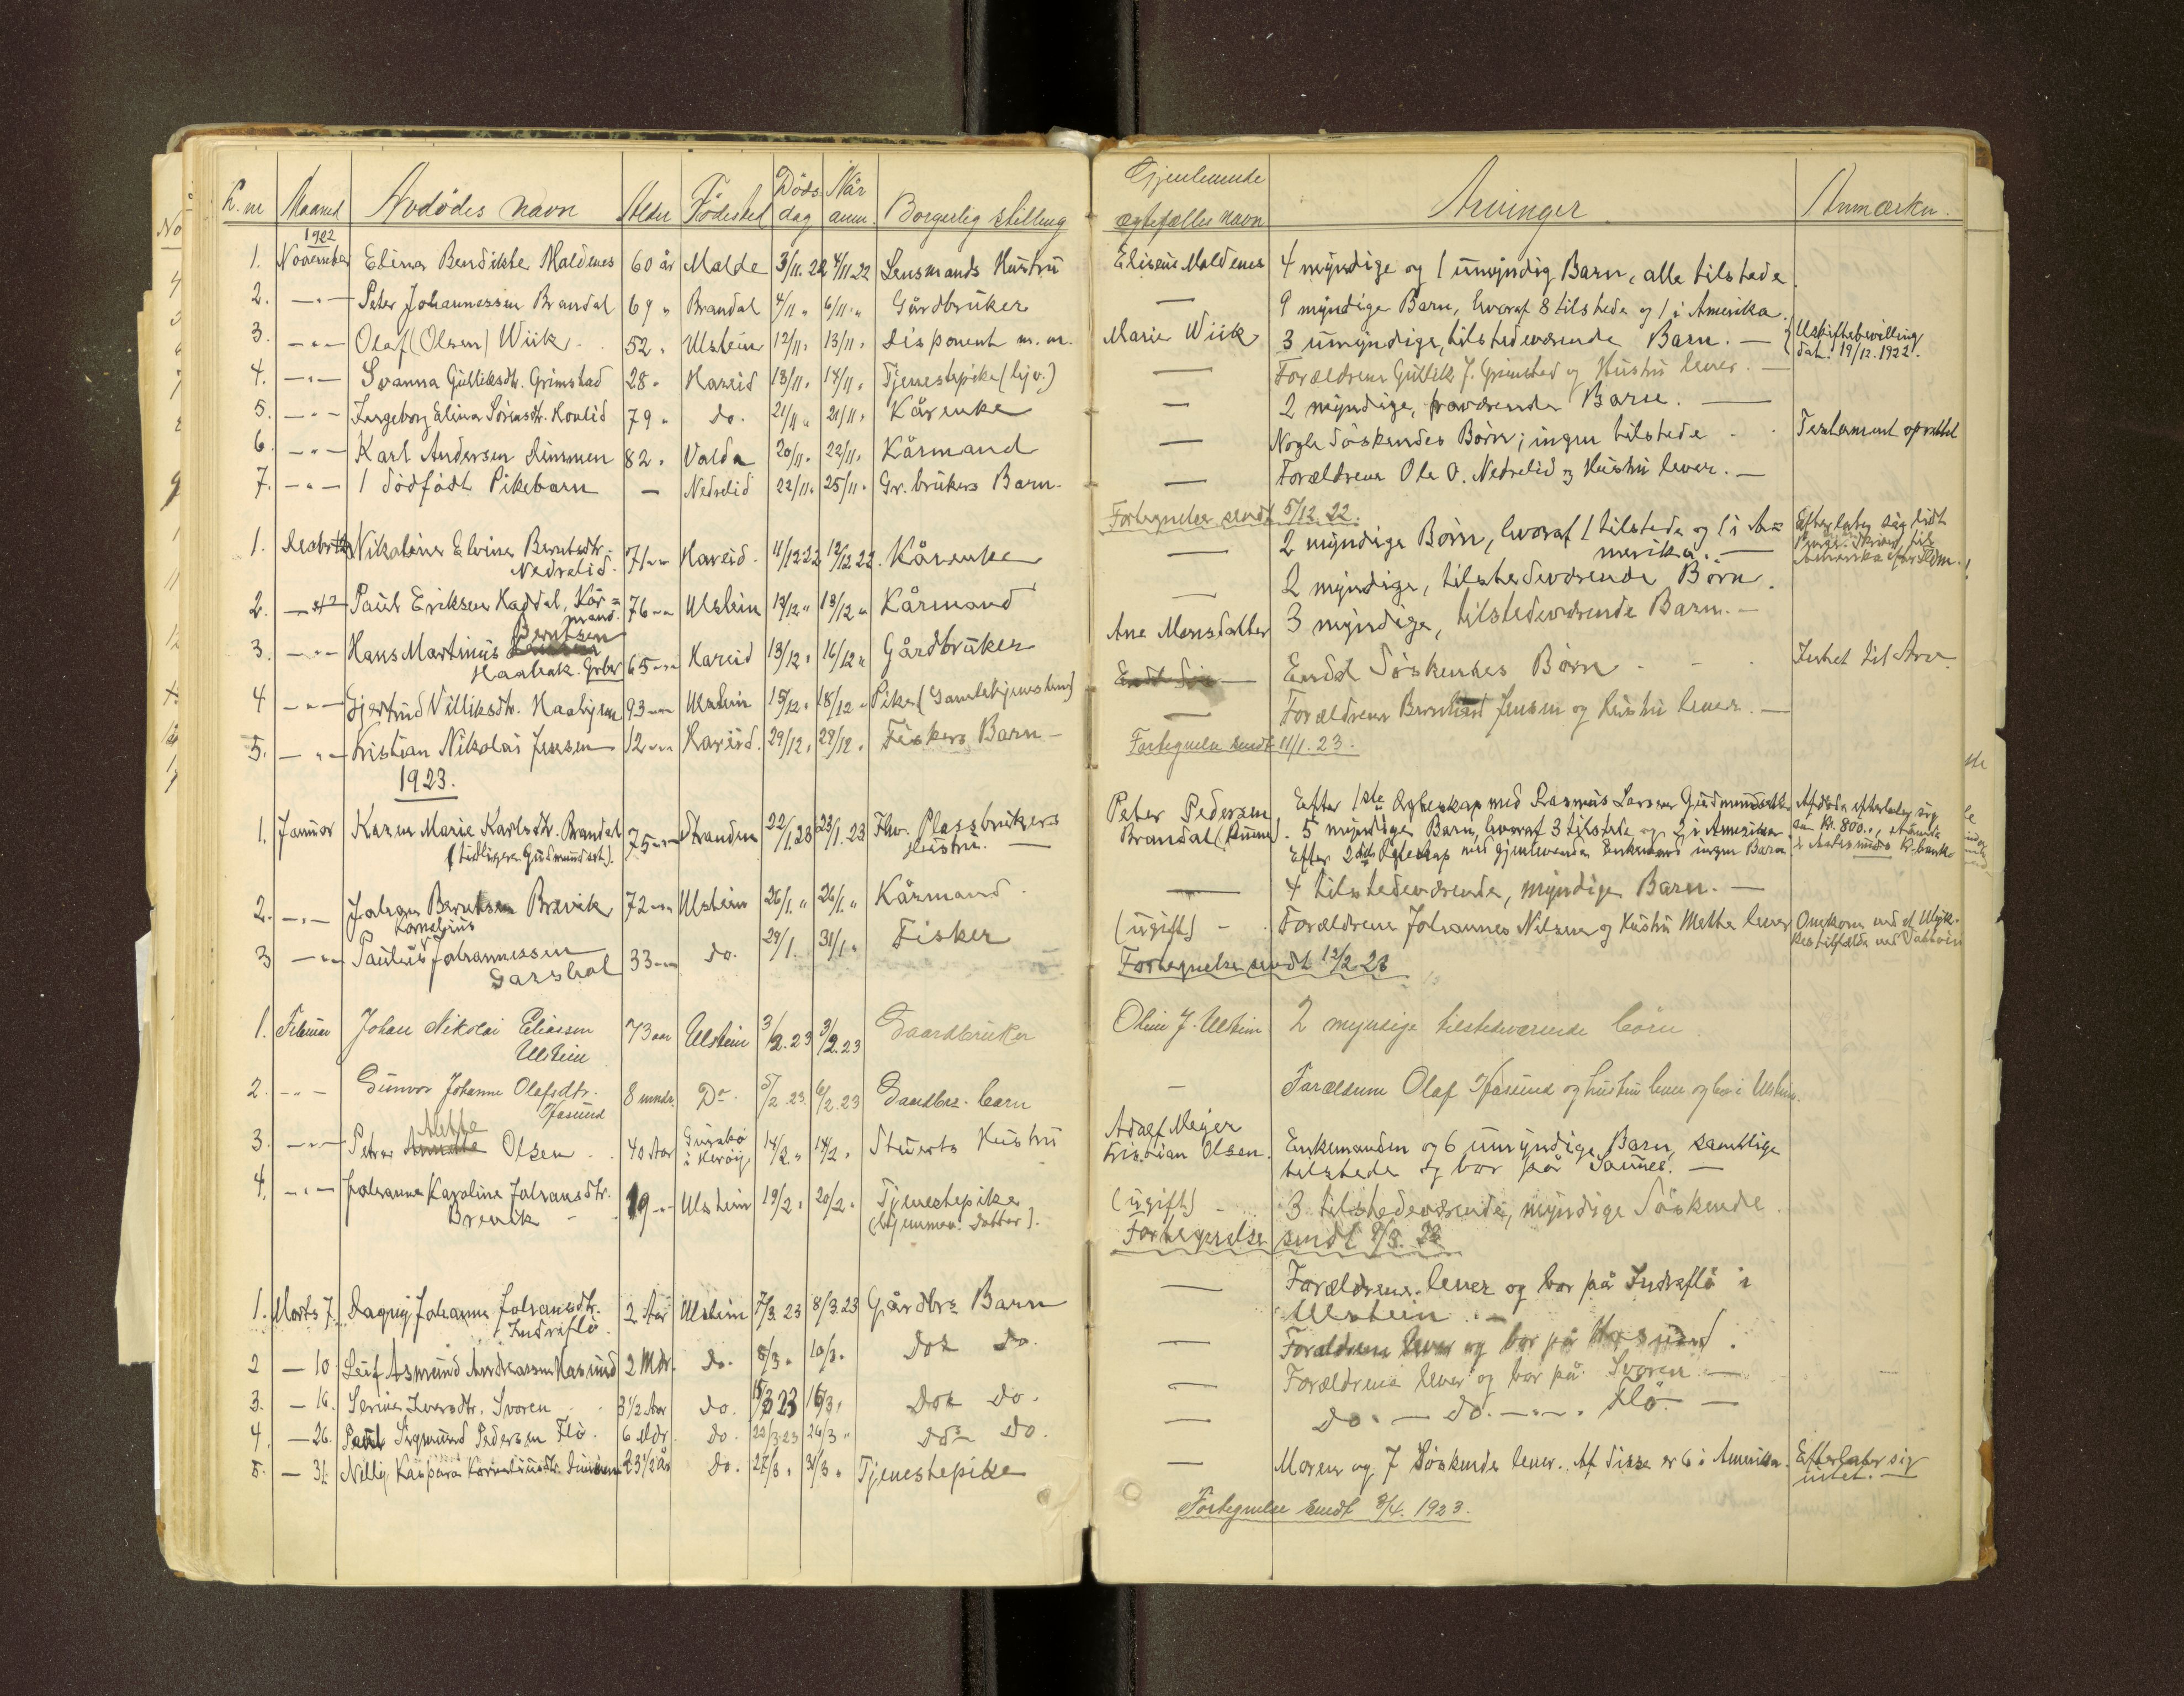 L. nr Maaned Avdödes navn Alder Födested Döds dag Når anm. Borgerlig stilling
1922
1. November Elina Bendikte Maldenes 60 år Malde 3/11.22 4/11.22 Lensmands Hustru
2. — " — Peter Johannessen Brandal 69 " Brandal 4/11 " 6/11 " Gårdbruker
3. — " — Olaf (Olsen) Wiik 52 " Ulstein 12/11 " 13/11 " Disponent m. m.
4. — " — Svanna Gulliksdtr. Grimstad 28 " Hareid 13/11 " 14/11 " Tjenestepike (hjv.)
5. — " — Ingeborg Elina Sörensdtr. Hovlid 79 " do. 21/11 " 21/11 " Kårenke
6. — " — Karl Andersen 82 " Volda 20/11 " 22/11 " Kårmand
7. — " — 1 dödfödt Pikebarn — Nedrelid 22/11 " 25/11 " Gr. brukers Barn.
1. Decbr. Nikoline Elvine Berntsdtr. 71 — " — Hareid. 11/12 22 12/12 22. Kårenke
Nedrelid.
2. — " — Paul Eriksen Kaddal, Kår= 76 — " — Ulstein 13/12 " 13/12 " Kårmand
mand.
Berntsen
3. — " — Hans Martinus 65 — " — Hareid 13/12 " 16/12 " Gårdbruker
Grbr
4 — " — Gjertrud Villiksdtr. Haabjøen 93 — " — Ulstein 15/12 " 18/12 " Pike (Gamletjenesten)
5. — " — Kristian Nikolai Jensen 12 — " — Hareid. 29/12 " 29/12 " Fiskers Barn —
1923.
1. Januar Karen Marie Karlsdtr. Brandal 75 — " — Stranden 22/1.23 23/1.23 Fhv. Plassbrukers
(tidligere Gudmundset). Hustru. —
2. — " — Johan Berntsen Brevik 72 — " — Ulstein 26/1. " 26/1. " Kårmand
Kornelius
3 — " — Paulus Johannessen 33 — " — do. 29/1. 31/1. " Fisker
Garshol
1. Februar Johan Nikolai Eliassen 73 aar Ulstein 3/2.23 3/2.23 Gaardbruker
Ulstein
2. — " — Gunvor Johanne Olafsdtr. 8 mndr. Do. 5/2.23. 6/2.23 Gaardbrs. barn
Hasund
Mette
3. — " — Petra Olsen 40 Aar Gurskö 14/2. " 14/2 " Stuerts Hustru
i Herøy
4. — " — Johanna Karoline Johansdtr. 19 — " — Ulstein 19/2 " 20/2 " Tjenestepike
Brevik (hjemmev. datter).
1. Marts 7. Dagny Johanne Johansdtr. 2 Aar Ulstein 7/3.23 8/3.23 Gårdbrs Barn
Indreflö.
2 — 10 Leif Asmund Andreassen Hasund 2 Mdr. do. 8/3 " 10/3 " Dos do.
3. — 16. Serine Iversdtr. Svoren 3 1/2 Aar do. 15/3 23 16/3 " Dos do.
4. — 26. Paul Sigmund Pedersen Flö. 6 Mdr. do. 22/3.23 26/3 " Dos do.
5. — 31. Nelly Kaspara Korneliusdtr. 23 1/2 år do. 27/3 " 31/3 " Tjenestepike
Gjenlevende
ægtefælles navn Arvinger Anmærkn.
Eliseus Maldenes 4 myndige og 1 umyndig Barn, alle tilstede.
— 9 myndige Barn, hvoraf 8 tilstede og 1 i Amerika.
Marie Wiik 3 umyndige, tilstedeværende Barn. — Uskiftebevilling
dat. 19/12.1922.
— Forældrene Gullik J. Grimstad og Hustru lever. —
— 2 myndige, fraværende Barn. —
— Nogle Söskendes Börn; ingen tilstede Testament oprettet
— Forældrene Ole O. Nedrelid og Hustru lever. —
Fortegnelse sendt 5/12. 22.
— 2 myndige Börn, hvoraf 1 tilstede og 1 i A=
merika. —
Efterlater sig lidt
— 2 myndige, tilstedeværende Börn.
Ane Monsdatter 3 myndige, tilstedeværende Barn. —
— Endel Söskendes Börn Intet til Arv.
— Forældrene Bernhard Jensen og Hustru lever. —
Fortegnelse sendt 11/1. 23.
Peter Pedersen Efter 1ste Ægteskap med Rasmus Larsen Gudmundset Afdöde efterlater sig
Brandal 5 myndige Barn, hvoraf 3 tilstede og 2 i Amerika. ca. kr. 800.,
Efter 2det Ægteskap med gjenlevende Enkemand ingen Barn
— 4 tilstedeværende, myndige Barn. —
(ugift) — Forældrene Johannes Nilsen og Hustru Mette lever Omkom ved et Ulyk=
kestilfælde ved
Fortegnelse sendt 12/2 23
Oline J. Ulstein 2 myndige tilstedeværende börn.
— Forældrene Olaf Hasund og hustru lever og bor i Ulstein.
Adolf Meyer
Kristian Olsen. Enkemanden og 6 umyndige Barn, samtlige
tilstede og bor på Saunes. —
(ugift) — 3 tilstedeværende, myndige Söskende.
Fortegnelse sendt 8/3. 23
— Forældrene lever og bor på Indreflö i
Ulstein. —
— Forældrene lever og bor på Hasund.
— Forældrene lever og bor på Svoren —
— Do. — do. — " — Flö. —
— Moren og 7 Söskende lever. Af disse er 6 i Amerika. Efterlater sig
intet. —
Fortegnelse sendt 3/4. 1923.